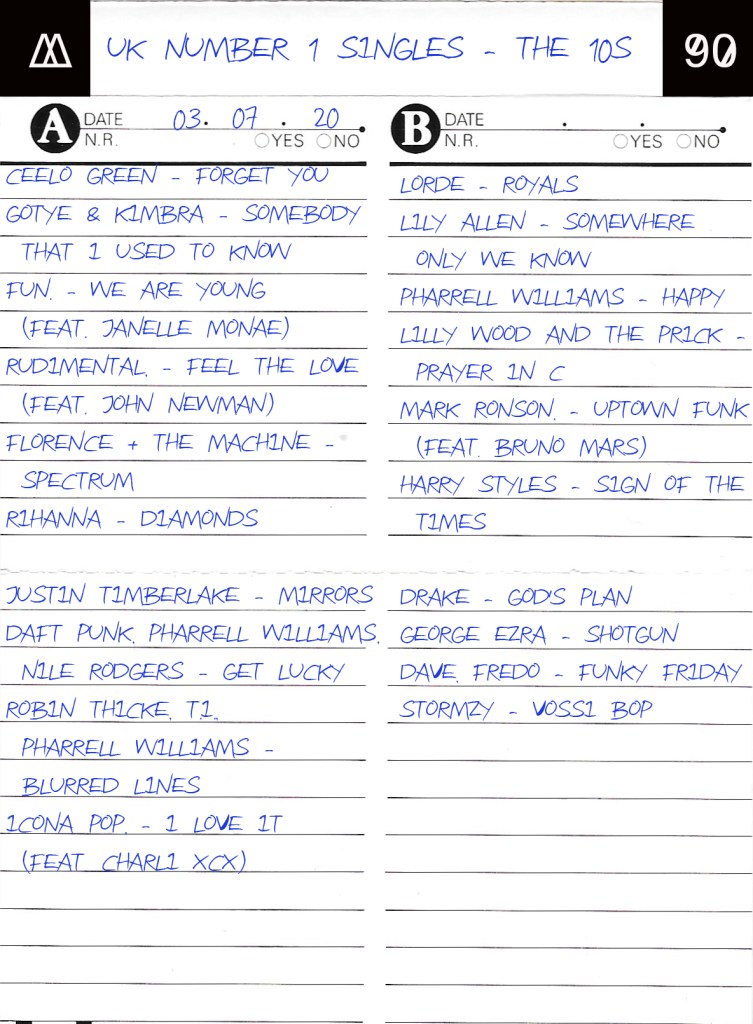 UK NUMBER 1 SINGLES - THE 10S
90
A
DATE 03. 07. 20
N.R. YES NO
CEELO GREEN - FORGET YOU
GOTYE & KIMBRA - SOMEBODY
THAT I USED TO KNOW
FUN. - WE ARE YOUNG
(FEAT. JANELLE MONAE)
RUDIMENTAL. - FEEL THE LOVE
(FEAT. JOHN NEWMAN)
FLORENCE + THE MACHINE -
SPECTRUM
RIHANNA - DIAMONDS
JUSTIN TIMBERLAKE - MIRRORS
DAFT PUNK, PHARRELL WILLIAMS,
NILE RODGERS - GET LUCKY
ROBIN THICKE, T.I.,
PHARRELL WILLIAMS -
BLURRED LINES
ICONA POP. - I LOVE IT
(FEAT. CHARLI XCX)
B
DATE . .
N.R. YES NO
LORDE - ROYALS
LILY ALLEN - SOMEWHERE
ONLY WE KNOW
PHARRELL WILLIAMS - HAPPY
LILLY WOOD AND THE PRICK -
PRAYER IN C
MARK RONSON. - UPTOWN FUNK
(FEAT. BRUNO MARS)
HARRY STYLES - SIGN OF THE
TIMES
DRAKE - GOD'S PLAN
GEORGE EZRA - SHOTGUN
DAVE, FREDO - FUNKY FRIDAY
STORMZY - VOSSI BOP